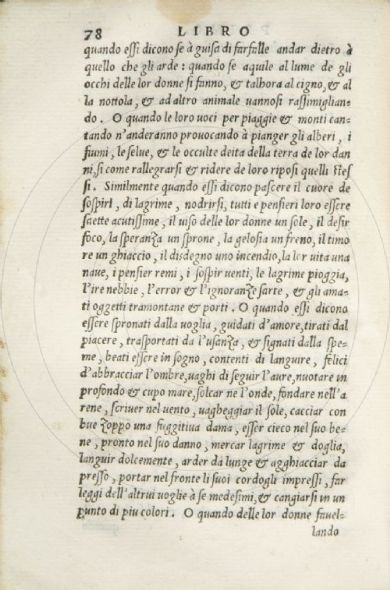 78 LIBRO
quando eſſi dicono ſe à guiſa di farfalle andar dietro à
quello che gli arde : quando ſe aquile al lume de gli
occhi delle lor donne ſi fanno, & talhora al cigno, & al
la nottola, & ad altro animale vannoſi raſſimiglian=
do. O quando le loro uoci per piaggie & monti can=
tando n'anderanno prouocando à pianger gli alberi, i
fiumi, le ſelue, & le occulte deita della terra de lor dan
ni, ſi come rallegrarſi & ridere de loro ripoſi quelli ſteſ
ſi. Similmente quando eſſi dicono paſcere il cuore de
ſoſpiri, di lagrime, nodrirſi, tutti e penſieri loro eſſere
ſaette acutiſſime, il uiſo delle lor donne un ſole, il deſir
foco, la ſperanza un ſprone, la geloſia un freno, il timo
re un ghiaccio, il diſdegno uno incendio, la lor uita una
naue, i penſier remi, i ſoſpir uenti, le lagrime pioggia,
l'ire nebbie, l'error & l'ignoranze ſarte, & gli ama=
ti oggetti tramontane & porti. O quando eſſi dicono
eſſere ſpronati dalla uoglia, guidati d'amore, tirati dal
piacere, traſportati da l'uſanza, & ſignati dalla ſpe=
me, beati eſſere in ſogno, contenti di languire, felici
d'abbracciar l'ombre, uaghi di ſeguir l'aure, nuotare in
profondo & cupo mare, ſolcar ne l'onde, fondare nell'a
rene, ſcriuer nel uento, uagheggiar il ſole, cacciar con
bue zoppo una fuggitiua dama, eſſer cieco nel ſuo be=
ne, pronto nel ſuo danno, mercar lagrime & doglia,
languir dolcemente, arder da lunge & agghiacciar da
preſſo, portar nel fronte li ſuoi cordogli impreſſi, far
leggi dell'altrui uoglie à ſe medeſimi, & cangiarſi in un
punto di piu colori. O quando delle lor donne fauel=
lando